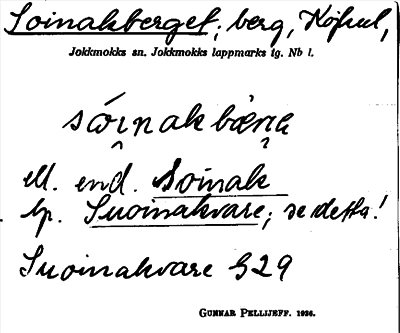 Soinakberget; berg, Köpsel,
Jokkmokks sn. Jokkmokks lappmarks tg. Nb l.
sóinakbærıɛ
ell. end. Soinak
lp. Suoinakvare; se detta!
Suoinakvare S29
GUNNAR PELLIJEFF. 1936.